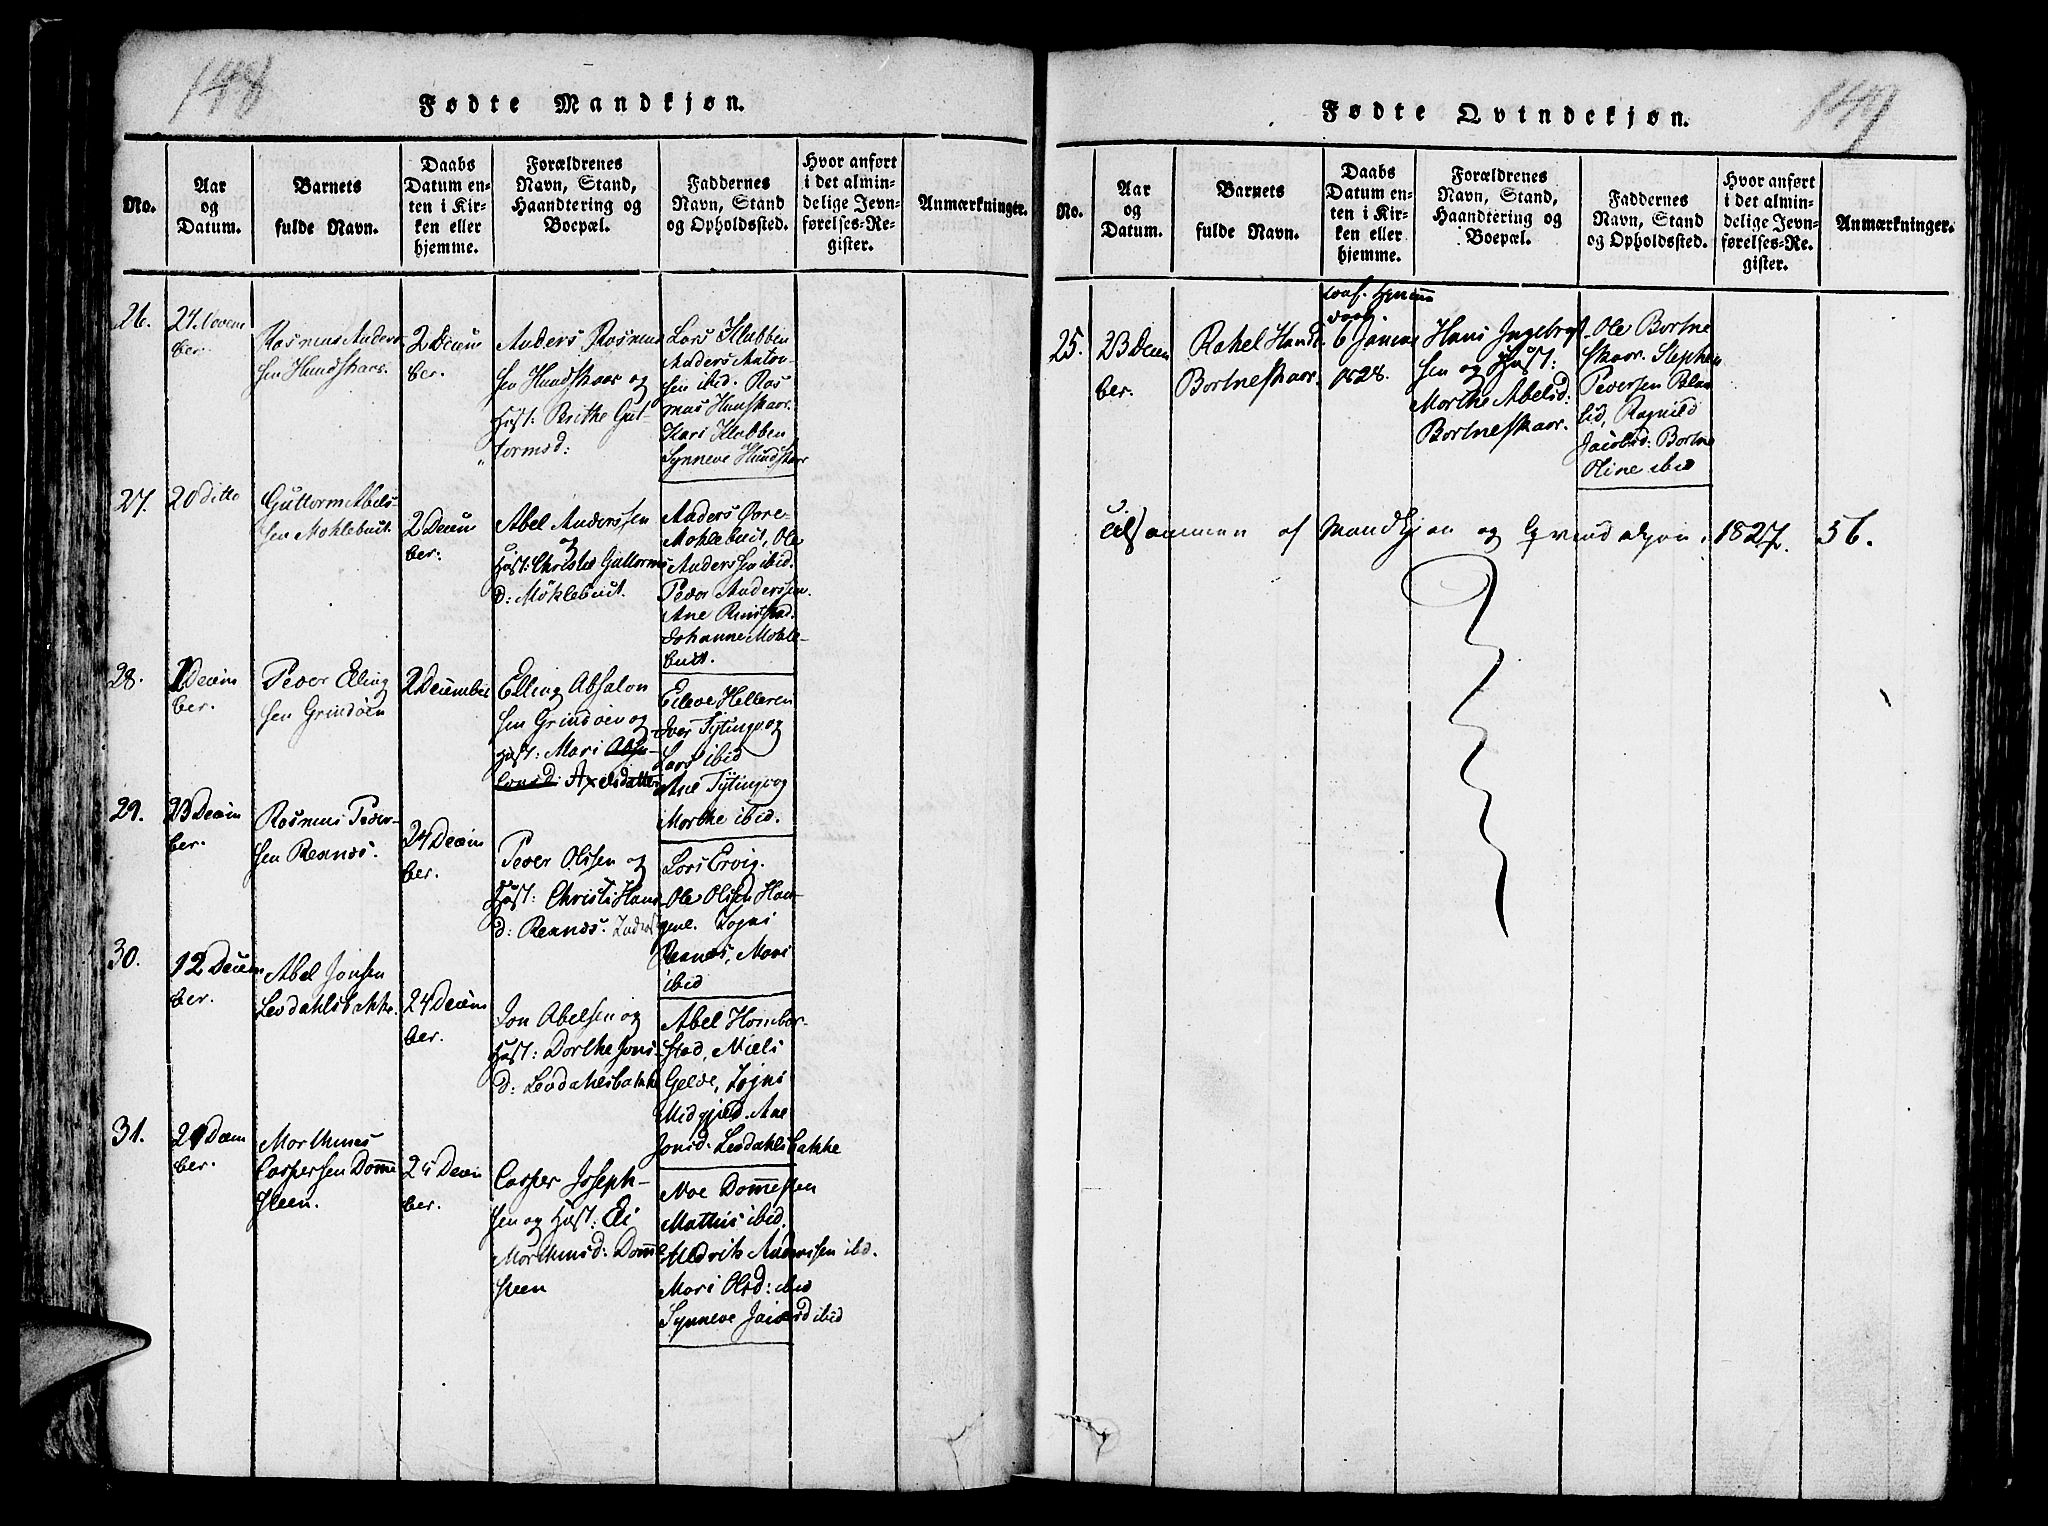 148
Fødte Mandkjøn.
No.
Aar
og
Datum.
Barnets
fulde Navn.
Daabs
Datum en-
ten i Kir-
ken eller
hjemme.
Forældrenes
Navn, Stand,
Haandtering og
Boepæl.
Faddernes
Navn, Stand
og Opholdssted.
Hvor anført
i det almin-
delige Jevn-
førelses-Re-
gister.
Anmærkninger.
26.
21 Novem
ber.
Rasmus Anders
sen Hundskaar.
2 Decem
ber.
Anders Rasmus
sen Hundskaar og
Hust: Brithe Gut-
tormsd:
Lars Klubben
Anders
sen ibid. Ras
mus Hunskaar.
Kari Klubben
Synneve Hundskaar
27.
20 ditto
Guttorm Abels-
sen Moklebust.
2 Decem
ber.
Abel Anderssen
og
Hust: Christie Guttorms
d: Möklebust.
Anders Øvre-
Moklebust, Ole
Anderssen ibid.
Peder Anderssen.
Ane Rimstad.
Johanne Mokle-
bust.
28.
1 Decem
ber.
Peder Elling
sen Grindöen
2 December
Elling Absalon
sen Grindöen og
Hust: Mari Absa-
lonsd: Axelsdatter
Eileve Helleren
Iver Tytingvog
Lars ibid
Ane Tytingvog
Morthe ibid.
29.
23 Decem
ber.
Rasmus Peder-
sen Rexnæs.
24 Decem
ber.
Peder Olssen og
Hust: Christi Hans
d: Rexnæs.
Lars Ervig.
Ole Olssen Hau-
gene. Logni
Rexnæs, Mari
ibid
30.
12 Decem
ber.
Abel Jonsen
Levdahlsbakke.
24 Decem
ber.
Jon Abelsen og
Hust: Dorthe Jons-
d: Levdahlsbakke
Abel Hombor-
stad, Niels
Gelde, Logni
Midgjerd. Ane
Jonsd: Levdahlsbakke
31.
21 Decem
ber.
Morthines
Caspersen Domme
steen.
25 Decem
ber.
Casper Joseph-
sen og Hust: Eli
Morthinsd: Domme
steen
Noe Dommesten
Mathis ibid.
Anderssen ibd.
Mari Olsd: ibid
Synneve Jacobsd ibid
149
Fødte Qvindekjøn.
No.
Aar
og
Datum.
Barnets
fulde Navn.
Daabs
Datum en-
ten i Kir-
ken eller
hjemme.
Forældrenes
Navn, Stand,
Haandtering og
Boepæl.
Faddernes
Navn, Stand
og Opholdssted.
Hvor anført
i det almin-
delige Jevn-
førelses-Re-
gister.
Anmærkninger.
25.
23 Decem
ber.
Rakel Hansd.
Bortneskaar.
daab.
6 Januar
1828.
Hans Ingebrigt
sen og Hust:
Morthe Abelsd:
Bortneskaar.
Ole Bortne
skaar. Stephen
Pedersen Blaa
lid, Ragnild
Jacobsd: Bortne
Oline ibid
Tilsammen af Mandkjøn og Qvindekjøn: 1827. 56.